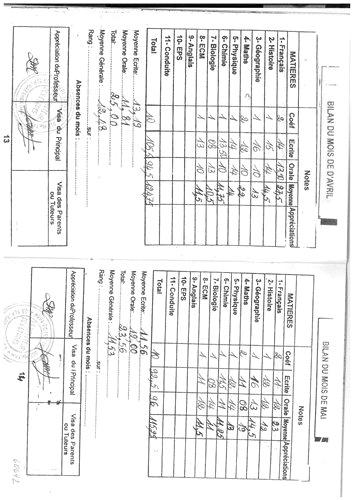 BILAN DU MOIS DE D'AVRIL
Notes
MATIERES Coéf Ecrite Orale Moyenne Appréciations
1- Français 2 14
2- Histoire 1 15 14 14,5
3- Géographie 1 16 10 13
4- Maths 2 12 10 22
5- Physique 1 14 14 14
6- Chimie 1 10 11,75
7- Biologie 1 08 13 10,5
8- ECM 1 13 10 11,5
9- Anglais
10- EPS
11- Conduite
Total 10 105,5 94,5 124,75
Moyenne Ecrite: 13,19
Moyenne Orale: 11,81
Total: 25,00
Moyenne Générale: 12,48
Rang : sur :
Absences du mois :
Appréciation du Professeur Visa du Principal Visa des Parents ou Tuteurs
13
BILAN DU MOIS DE MAI
Notes
MATIERES Coéf Ecrite Orale Moyenne Appréciations
1- Français 2 11 12 23
2- Histoire 1 12 12 12
3- Géographie 1 16 13 14,5
4- Maths 2 11 08 19
5- Physique 1 12 14 13
6- Chimie 1 11
7- Biologie 1 14
8- ECM 1 11 12 11,5
9- Anglais
10- EPS
11- Conduite
Total 10 92,5 96 115,75
Moyenne Ecrite: 11,56
Moyenne Orale: 12,00
Total: 23,56
Moyenne Générale:
Rang : sur :
Absences du mois :
Appréciation du Professeur Visa du Principal Visa des Parents ou Tuteurs
14